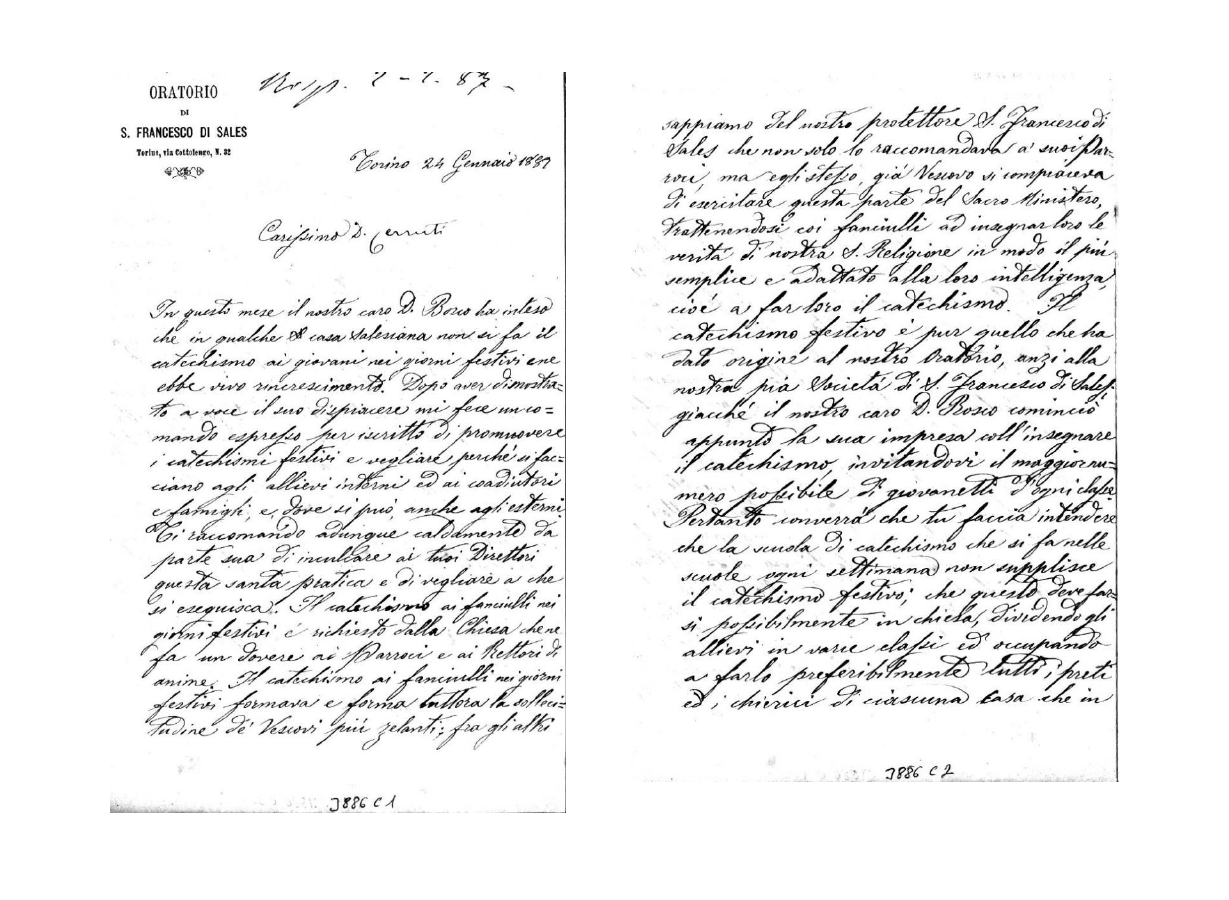 Risp. 2-2. 87-
ORATORIO
DI
S. FRANCESCO DI SALES
Torino, via Cottolengo, N. 32
Torino 24 Gennaio 1887
Carissimo D. Cerruti
In questo mese il nostro caro D. Bosco ha inteso
che in qualche casa Salesiana non si fa il
catechismo ai giovani nei giorni festivi e ne
ebbe vivo rincrescimento. Dopo aver dimostra-
to a voce il suo dispiacere mi fece un co=
mando espresso per iscritto di promuovere
i catechismi festivi e vegliare perché si fac=
ciano agli allievi interni ed ai coadiutori
e famigli, e, dove si può, anche agli esterni.
Ti raccomando adunque caldamente da
parte sua di inculcare ai tuoi Direttori
questa santa pratica e di vegliare a che
si eseguisca. Il catechismo ai fanciulli nei
giorni festivi è richiesto dalla Chiesa che ne
fa un dovere ai Parroci e ai Rettori di
anime. Il catechismo ai fanciulli nei giorni
festivi formava e forma tuttora la solleci=
tudine de' Vescovi più zelanti; fra gli altri
J886 C1
sappiamo del nostro protettore S. Francesco di
Sales che non solo lo raccomandava a' suoi Par-
roci, ma egli stesso, già Vescovo si compiaceva
di esercitare questa parte del Sacro Ministero,
trattenendosi coi fanciulli ad insegnar loro le
verità di nostra S. Religione in modo il più
semplice e adattato alla loro intelligenza,
cioé a far loro il catechismo. Il
catechismo festivo è pur quello che ha
dato origine al nostro Oratorio, anzi alla
nostra pia Società di S. Francesco di Sales,
giacché il nostro caro D. Bosco cominciò
appunto la sua impresa coll'insegnare
il catechismo, invitandovi il maggior nu=
mero possibile di giovanetti d'ogni classe.
Pertanto converrà che tu faccia intendere
che la scuola di catechismo che si fa nelle
scuole ogni settimana non supplisce
il catechismo festivo; che questo deve far=
si possibilmente in chiesa, dividendo gli
allievi in varie classi ed occupando
a farlo preferibilmente tutti i preti
ed i chierici di ciascuna casa che in
J886 C2